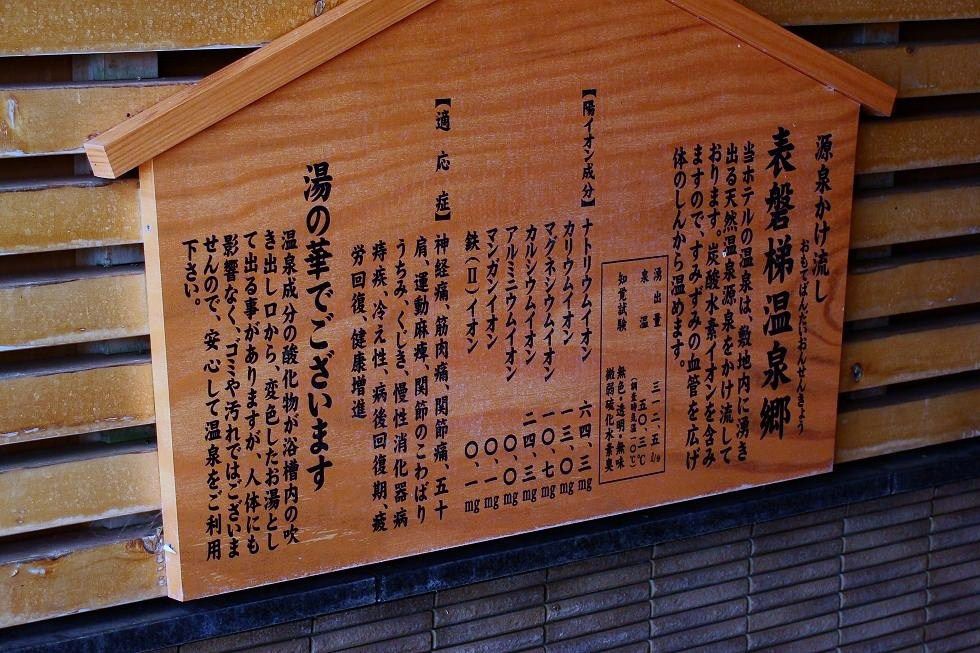 源泉かけ流し
おもてばんだいおんせんきょう
表磐梯温泉郷
当ホテルの温泉は、敷地内に湧き
出る天然温泉源泉をかけ流して
おります。炭酸水素イオンを含み
ますので、すみずみの血管を広げ
体のしんから温めます。
湧出量 三一二、五ℓ/分
泉温 五〇、三℃
(調査時気温二〇℃)
知覚試験 無色・透明・無味
微弱硫化水素臭
【陽イオン成分】ナトリウムイオン 六四、三mg
カリウムイオン 一三、〇mg
マグネシウムイオン 一〇、七mg
カルシウムイオン 二四、三mg
アルミニウムイオン 〇、〇mg
マンガンイオン 〇、一mg
鉄(Ⅱ)イオン 〇、一mg
【適応症】神経痛、筋肉痛、関節痛、五十
肩、運動麻痺、関節のこわばり
うちみ、くじき、慢性消化器病
痔疾、冷え性、病後回復期、疲
労回復、健康増進
湯の華でございます
温泉成分の酸化物が浴槽内の吹
き出し口から、変色したお湯とし
て出る事がありますが、人体にも
影響なく、ゴミや汚れではございま
せんので、安心して温泉をご利用
下さい。